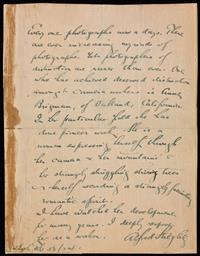 Every one photographs now a days. There
are ever increasing myriads of
photographs. Yet photographers of
distinction are rarer than ever. One
who has achieved deserved distinction
amongst camera workers is Annie
Brigman, of Oakland, California.
In her particular field she has
done pioneer work. She is a
woman expressing herself through
her camera & her mountains &
her strangely struggling trees
& herself revealing a strangely
romantic spirit.
I have watched her development
for many years. I deeply respect
her as a worker.
Alfred Stieglitz